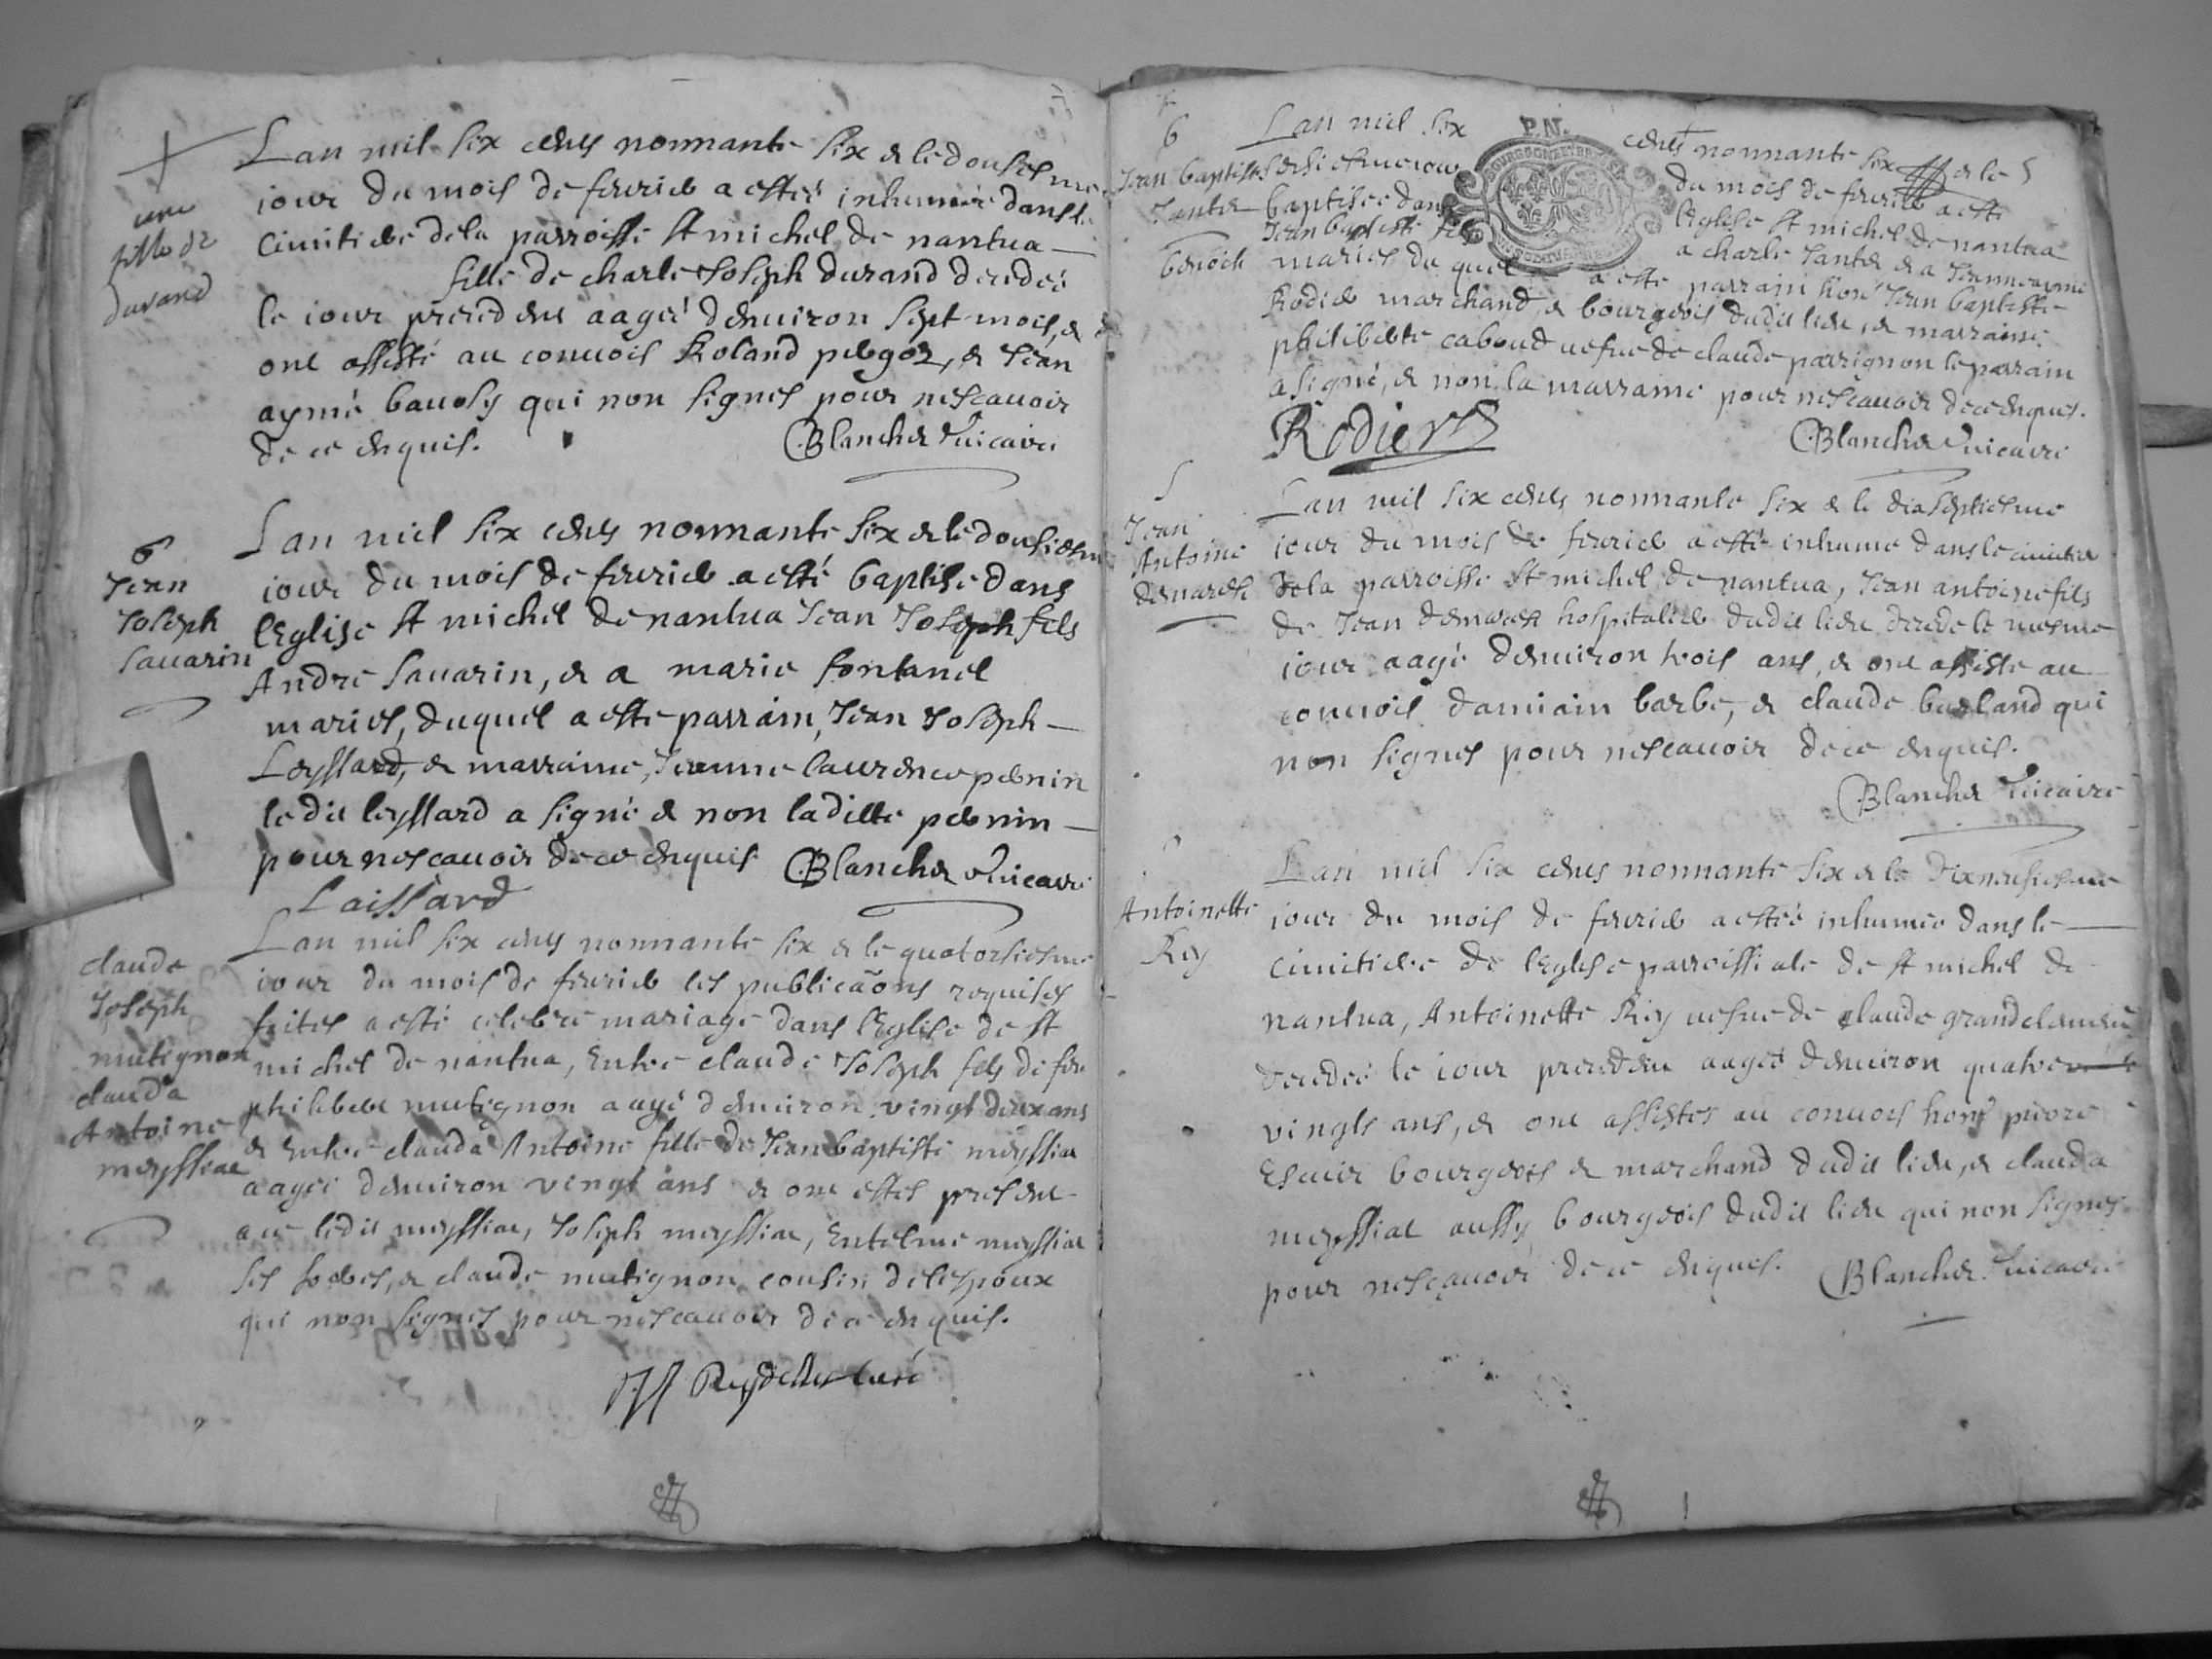 une
fille de
durand
Lan mil six cents nonnante six & le dousiesme
iour du mois de feurier a estée inhumée dans le
Cimitiere dela parroisse st michel de nantua
fille de charle Joseph durand decedeé
le iour precedent aageé denuiron sept mois, &
ont assisté au conuois Roland pergod, & Jean
aymé baudy qui non signes pour nescauoir
de ce enquis.
Blanchet Vicaire
6
Jean
Joseph
Sauarin
Lan mil six cents nonnante six & le dousiesme
iour du mois de feurier a esté baptisé dans
lEglise st michel de nantua Jean Joseph fils
André Sauarin, & a marie fontanel
maries, duquel a esté parrain, Jean Joseph
Leyssard, & marraine, Jeanne Laurence pernin
le dit leyssard a signé & non la ditte pernin
pour nescauoir de ce enquis Blanchet Vicaire
Laissard
claude
Joseph
mutignon
clauda
Antoine
meyssiat
Lan mil six cents nonnante six & le quatorsiesme
iour du mois de feurier les publicaõns requises
faites a esté celebré mariage dans lEglise de st
michel de nantua, Entre claude Joseph fils de feu
philibert mutignon aagé denuiron vingt deux ans
& Entre clauda Antoine fille de Jean baptiste meyssiat
aageé denuiron vingt ans & ont estes present
au ledit meyssiat, Joseph meyssiat, Entelme meyssiat
ses freres, & claude mutignon cousin de lespoux
qui non signes pour nescauoir de ce enquis.
Reydellet curé
6
Jean baptiste
Jantet
benoict
P.N.
Lan mil six cents nonnante six & le
sesiesme iour du mois de feurier a esté
baptisée dans lEglise st michel de nantua
Jean baptiste fils a charle Jantet & a Jeanne aymé
maries du quel a esté parrain honé Jean baptiste
Rodier marchand & bourgeois dudit lieu, & marraine
philiberte caboud uefue de claude parrignon le parrain
a signé, & non la marraine pour nescauoir de ce enquis.
Rodier
Blanchet Vicaire
Jean
Antoine
demarest
Lan mil six cents nonnante six & le dix septiesme
iour du mois de feurier a esté inhumé dans le cimitiere
dela parroisse st michel de nantua, Jean antoine fils
de Jean demarest hospitalier dudit lieu decede le mesme
iour aagé denuiron trois ans, & ont assiste au
conuois damiain barbe, & claude burland qui
non signes pour nescauoir de ce enquis.
Blanchet Vicaire
Antoinette
Rey
Lan mil six cents nonnante six & le dixneufiesme
iour du mois de feurier a estée inhumée dans le
Cimitiere de lEglise parroissiale de st michel de
nantua, Antoinette Rey uefue de claude grandclement
decedeé le iour precedent aageé denuiron quatre
vingts ans, & ont assistes au conuois hons pierre
Escuir bourgeois & marchand dudit lieu, & clauda
meyssiat aussy bourgeois dudit lieu qui non signes
pour nescauoir de ce enquis. Blanchet Vicaire